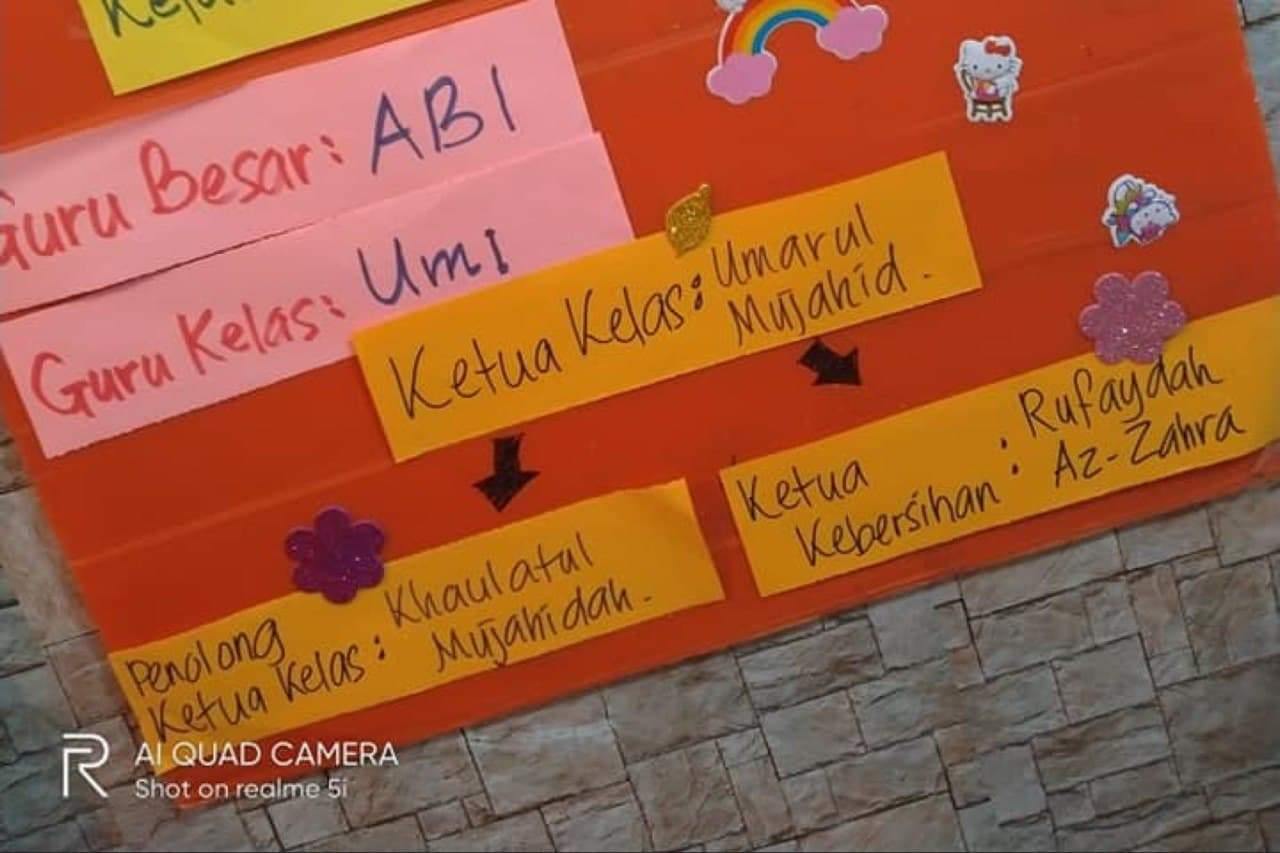 Guru Besar: ABI
Guru Kelas: Umi
Ketua Kelas: Umarul
Mujahid.
Ketua
Kebersihan : Rufaydah
Az-Zahra
Penolong
Ketua Kelas: Khaulatul
Mujahidah.
AI QUAD CAMERA
Shot on realme 5i